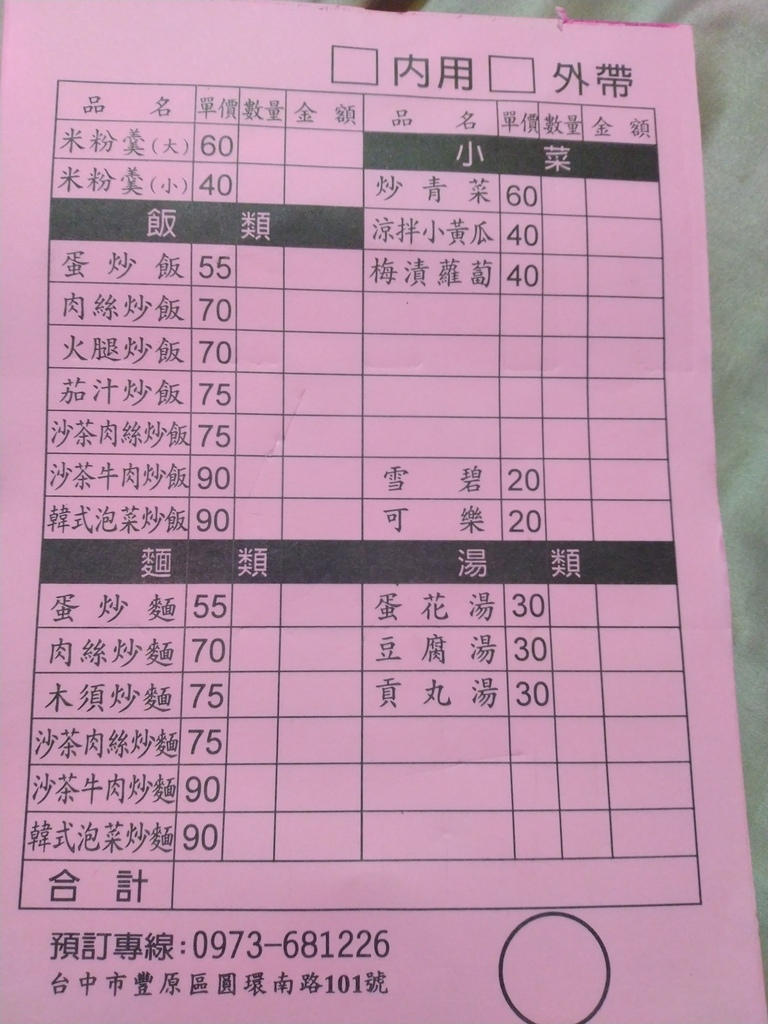 □內用□外帶
品名 單價 數量 金額 品名 單價 數量 金額
米粉羹(大) 60 小菜
米粉羹(小) 40 炒青菜 60
飯類 涼拌小黃瓜 40
蛋炒飯 55 梅漬蘿蔔 40
肉絲炒飯 70
火腿炒飯 70
茄汁炒飯 75
沙茶肉絲炒飯 75
沙茶牛肉炒飯 90 雪碧 20
韓式泡菜炒飯 90 可樂 20
麵類 湯類
蛋炒麵 55 蛋花湯 30
肉絲炒麵 70 豆腐湯 30
木須炒麵 75 貢丸湯 30
沙茶肉絲炒麵 75
沙茶牛肉炒麵 90
韓式泡菜炒麵 90
合計
預訂專線:0973-681226
台中市豐原區圓環南路101號